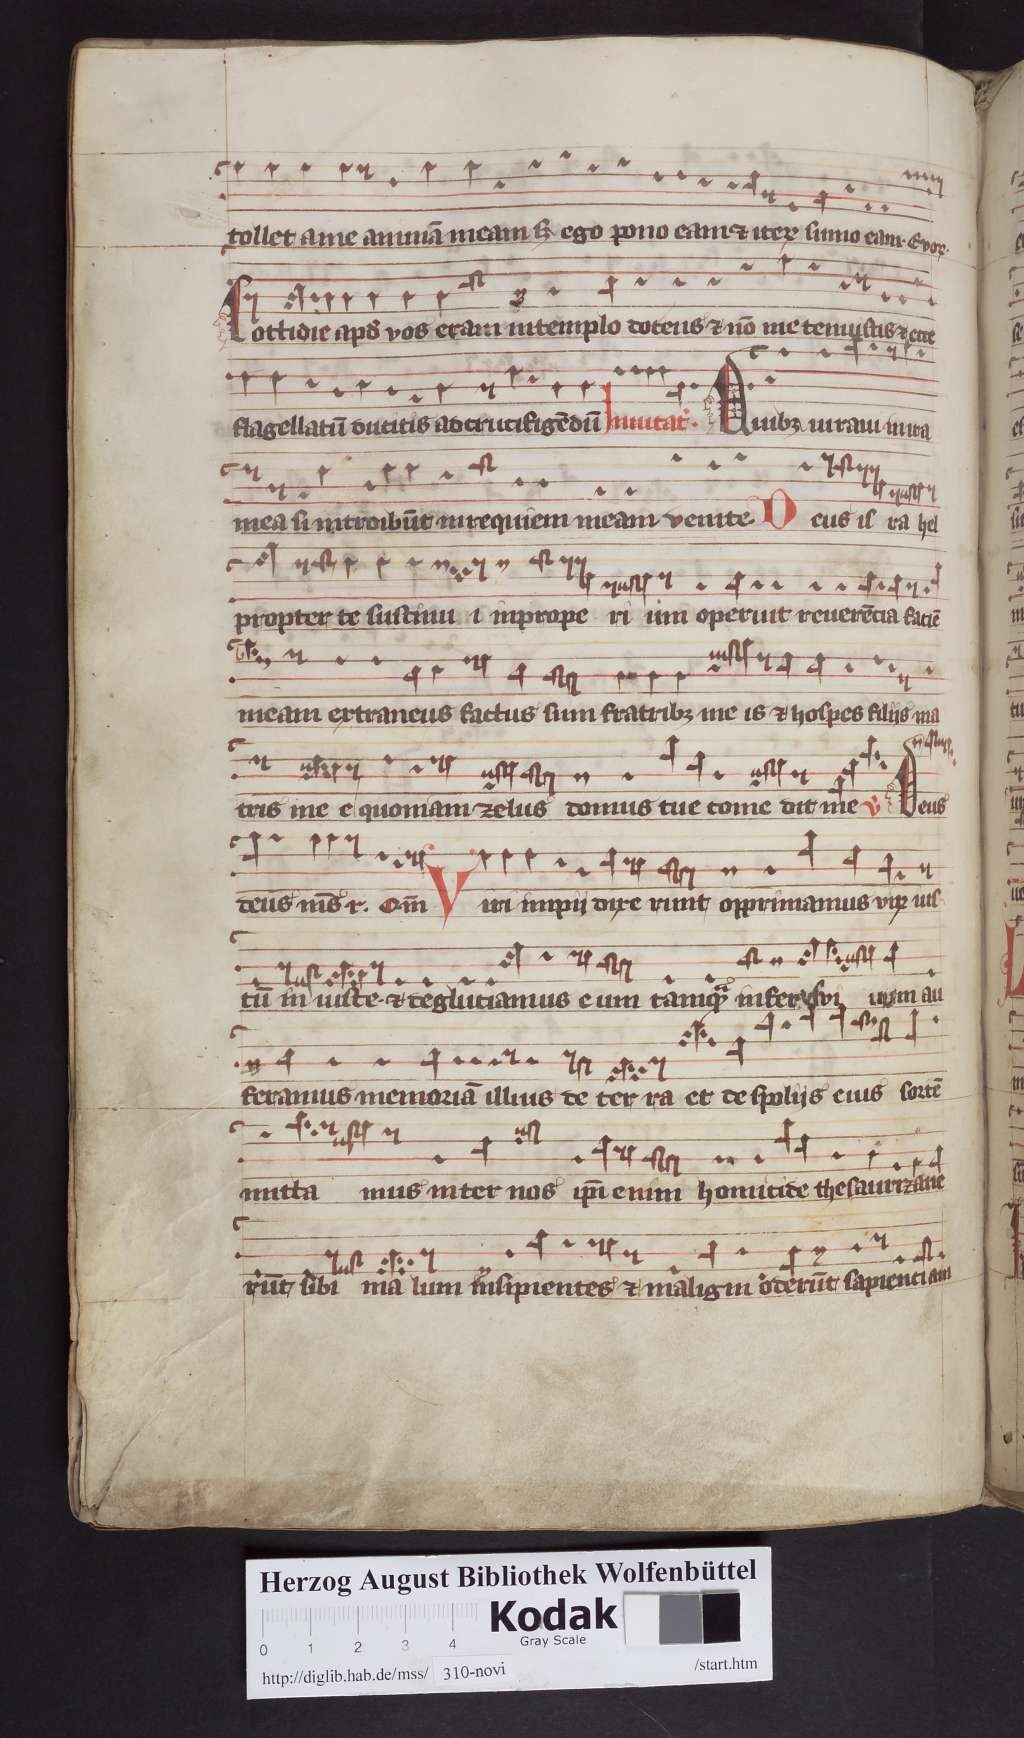 tollet a me animā meam s; ego pono eam ⁊ iteꝝ sumo eam. Evoꝝ.
Cottidie apđ vos eram in templo docens ⁊ nō me tenuistis ⁊ ecce
flagellatū ducitis ad crucifigēdū Inuitat'. Quibꝫ iuraui in ira
mea si introibūt in requiem meam venite. Deus is ra hel
propter te sustinu i inprope ri um operuit reuerētia faciē
meam extraneus factus sum fratribꝫ me is ⁊ hospes filijs ma
tris me e quoniam zelus domus tue come dit me v Deus
deus m̄s r. Om̄ Viri impij dixe runt opprimamus viꝝ ius
tū in iuste. ⁊ deglutiamus e um tamqͣ infer vi uum au
feramus memoriā illius de ter ra et de spolijs eius sortē
mitta mus inter nos ip̄i enim homicide thesaurizaue
rūt sibi ma lum Insipientes ⁊ maligni oderūt sapientiam
Herzog August Bibliothek Wolfenbüttel
Kodak
Gray Scale
0 1 2 3 4
http://diglib.hab.de/mss/ 310-novi /start.htm